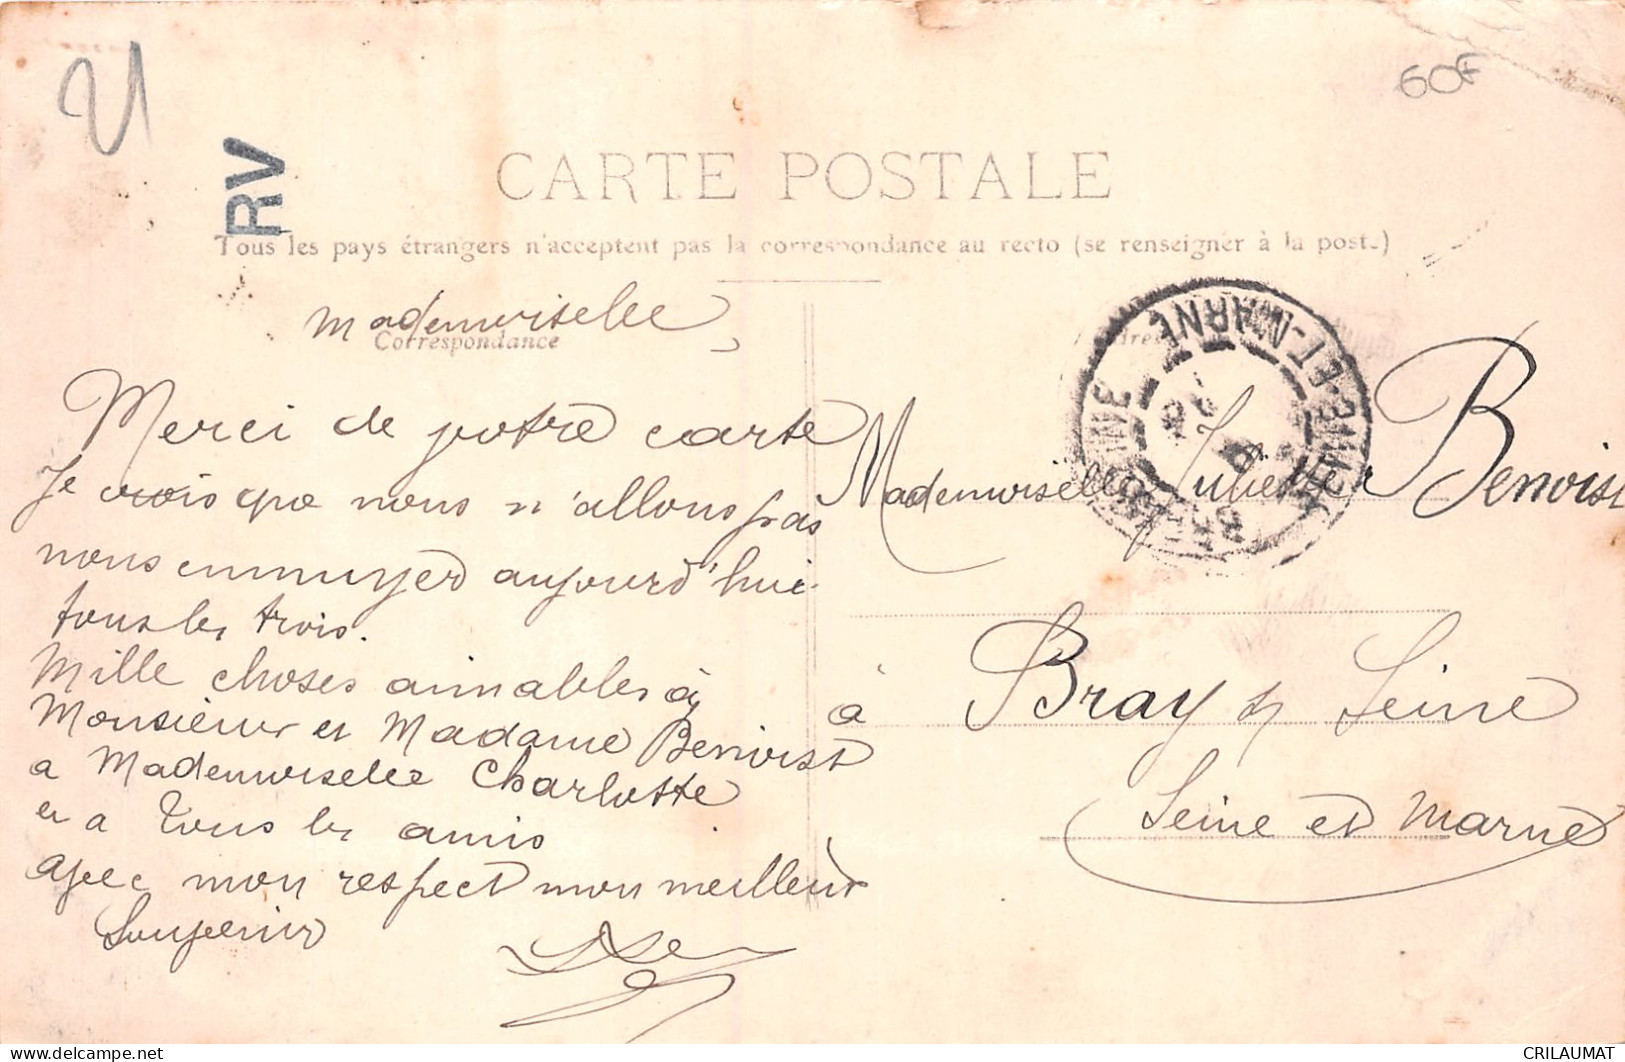 60F
RV
CARTE POSTALE
Tous les pays étrangers n'acceptent pas la correspondance au recto (se renseigner à la poste)
Mademoiselle
Correspondance
Merci de votre carte
Je crois que nous n'allons pas
nous ennuyer aujourd'hui
tous les trois.
Mille choses aimables à
Monsieur et Madame Benoist
a Mademoiselle Charlotte
et a Tous les amis
avec mon respect mon meilleur
Souvenir
SEINE-ET-MARNE
Mademoiselle Juliette Benoist
à Bray s/ Seine
Seine et Marne
delcampe.net
CRILAUMAT